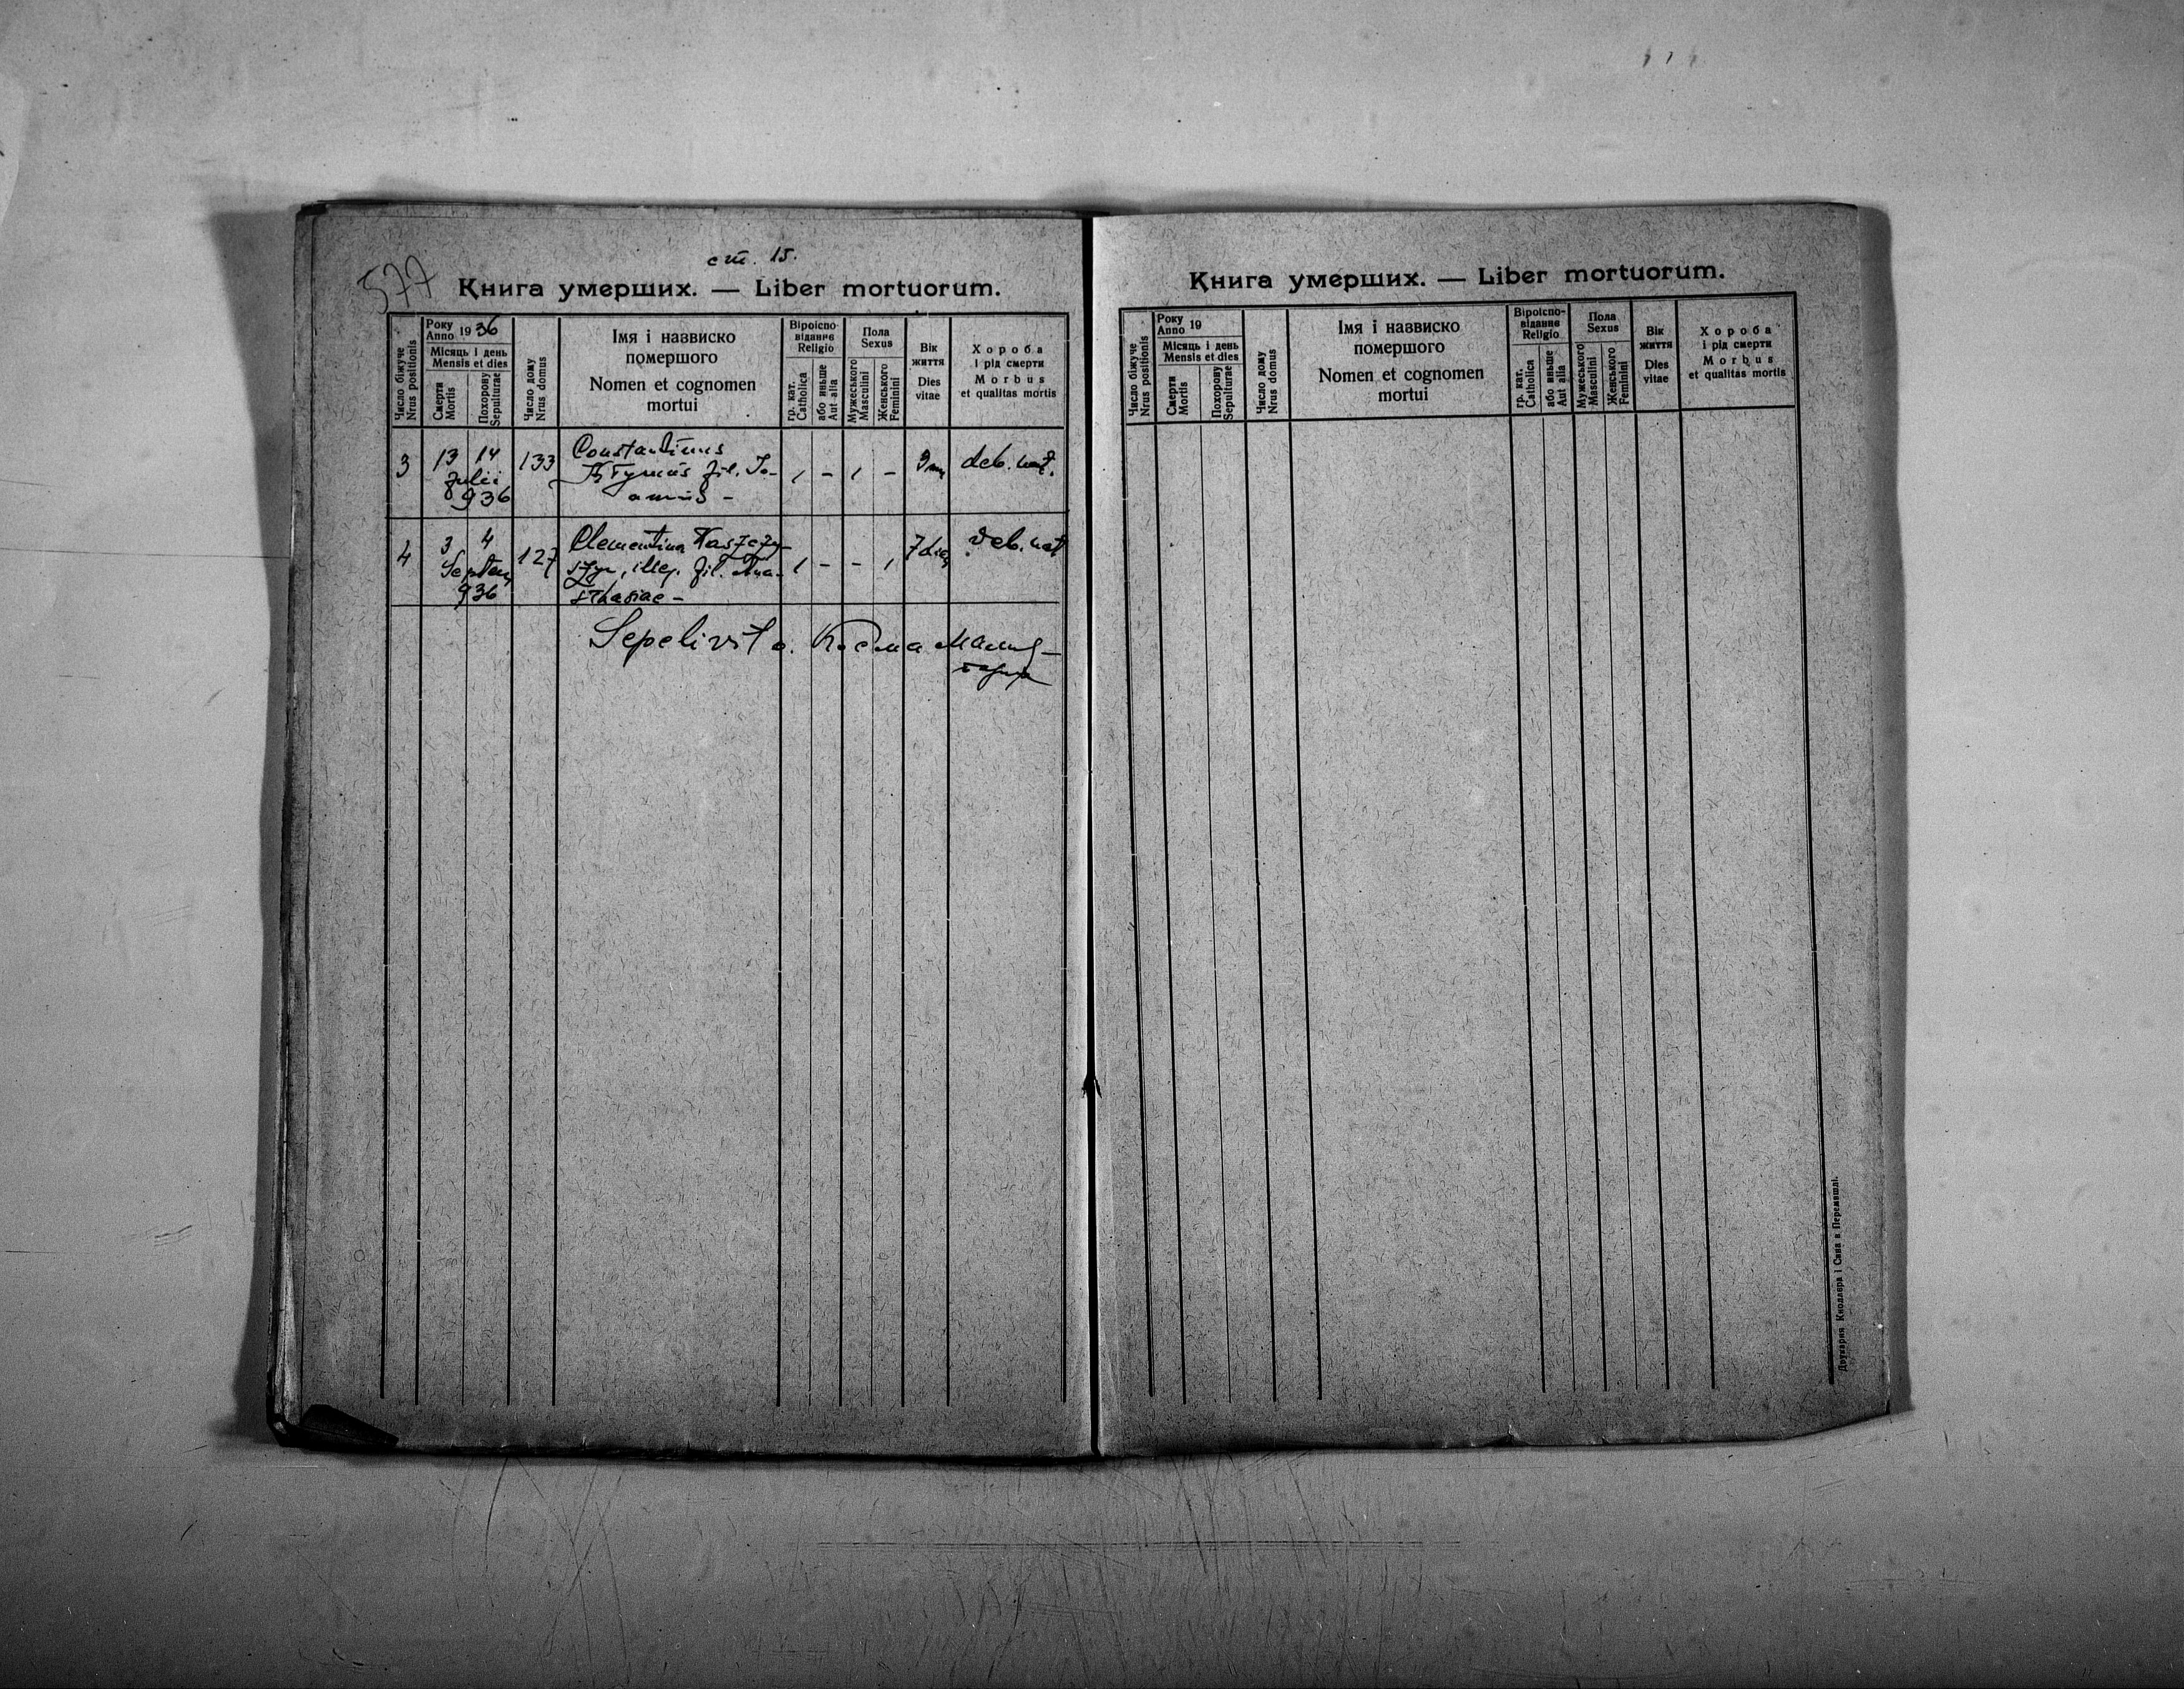 ст. 15.
577
Книга умерших. — Liber mortuorum.
Число біжуче
Nrus positionis
Року
Anno 1936
Місяць і день
Mensis et dies
Смерти
Mortis
Похорону
Sepulturae
Число дому
Nrus domus
Імя і назвиско
помершого
Nomen et cognomen
mortui
Віроіспо-
відання
Religio
гр. кат.
Catholica
або иньше
Aut alia
Пола
Sexus
Мужеського
Masculini
Женського
Feminini
Вік
життя
Dies
vitae
Хороба
і рід смерти
Morbus
et qualitas mortis
3 13 14 133 Constantinus
fil. Jo-
Julii
annis -
936
- -
deb. nat.
4 3 4 127 Clementina
illeg. fil. Ana-
Septem
sthasiae -
936
- -
7 dies
deb. nat
Sepelivit o. Косма
Книга умерших. — Liber mortuorum.
Число біжуче
Nrus positionis
Року
Anno 19
Місяць і день
Mensis et dies
Смерти
Mortis
Похорону
Sepulturae
Число дому
Nrus domus
Імя і назвиско
помершого
Nomen et cognomen
mortui
Віроіспо-
відання
Religio
гр. кат.
Catholica
або иньше
Aut alia
Пола
Sexus
Мужеського
Masculini
Женського
Feminini
Вік
життя
Dies
vitae
Хороба
і рід смерти
Morbus
et qualitas mortis
Друкарня Кноллера і Сина в Перемишлі.